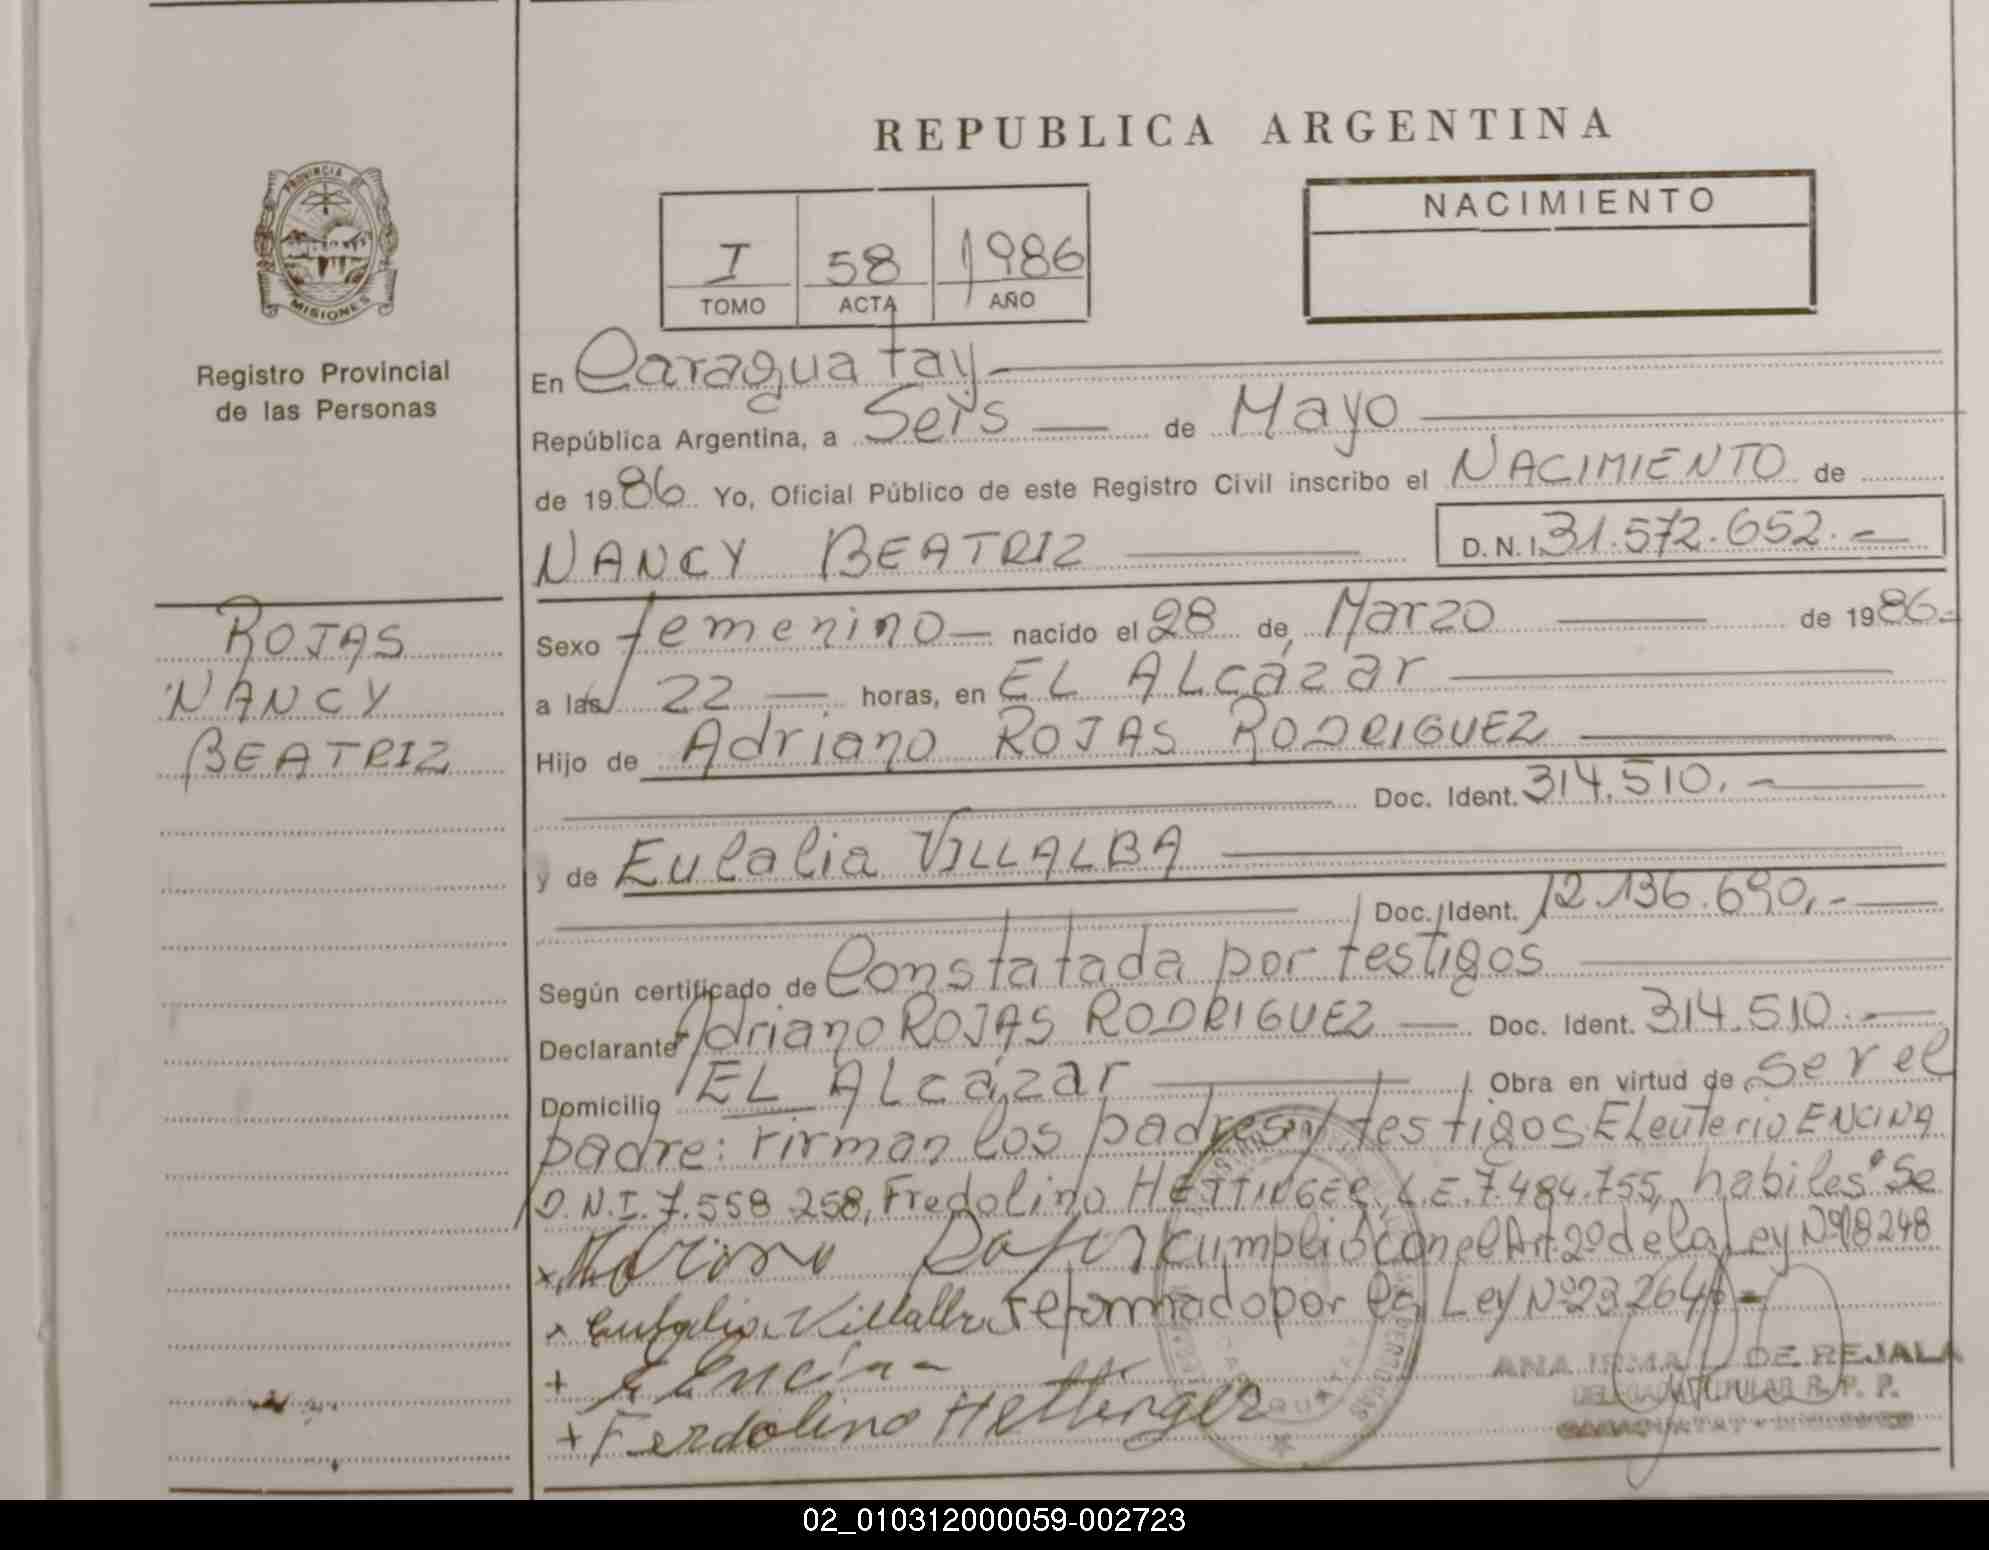 REPUBLICA ARGENTINA
PROVINCIA DE
MISIONES
Registro Provincial
de las Personas
I 58 1986
TOMO ACTA AÑO
NACIMIENTO
En Caraguatay
República Argentina, a Seis de Mayo
de 1986 Yo, Oficial Público de este Registro Civil inscribo el NACIMIENTO de
NANCY BEATRIZ D.N.I. 31.572.652.-
ROJAS
NANCY
BEATRIZ
Sexo femenino nacido el 28 de Marzo de 1986.-
a las 22 horas, en EL ALcázar
Hijo de Adriano ROJAS RODRIGUEZ
Doc. Ident. 314.510.-
y de Eulalia VILLALBA
Doc. Ident. 12.136.690.-
Según certificado de Constatada por testigos
Declarante Adriano ROJAS RODRIGUEZ Doc. Ident. 314.510.-
Domicilio EL ALcázar Obra en virtud de ser el
padre: Firman los padres y testigos Eleuterio ENCINA
D.N.I. 7.558.258, Fredolino HETTINGER, L.E. 7.484.755, habiles. Se
cumplió con el Art. 2º de la Ley Nº 18248
Eulalia Villalba reformado por la Ley Nº 23264.-
E Encina
Ferdolino Hettinger
ANA IRMA DE REJALA
DELEGADA TITULAR R. P. P.
CARAGUATAY - MISIONES
02_010312000059-002723